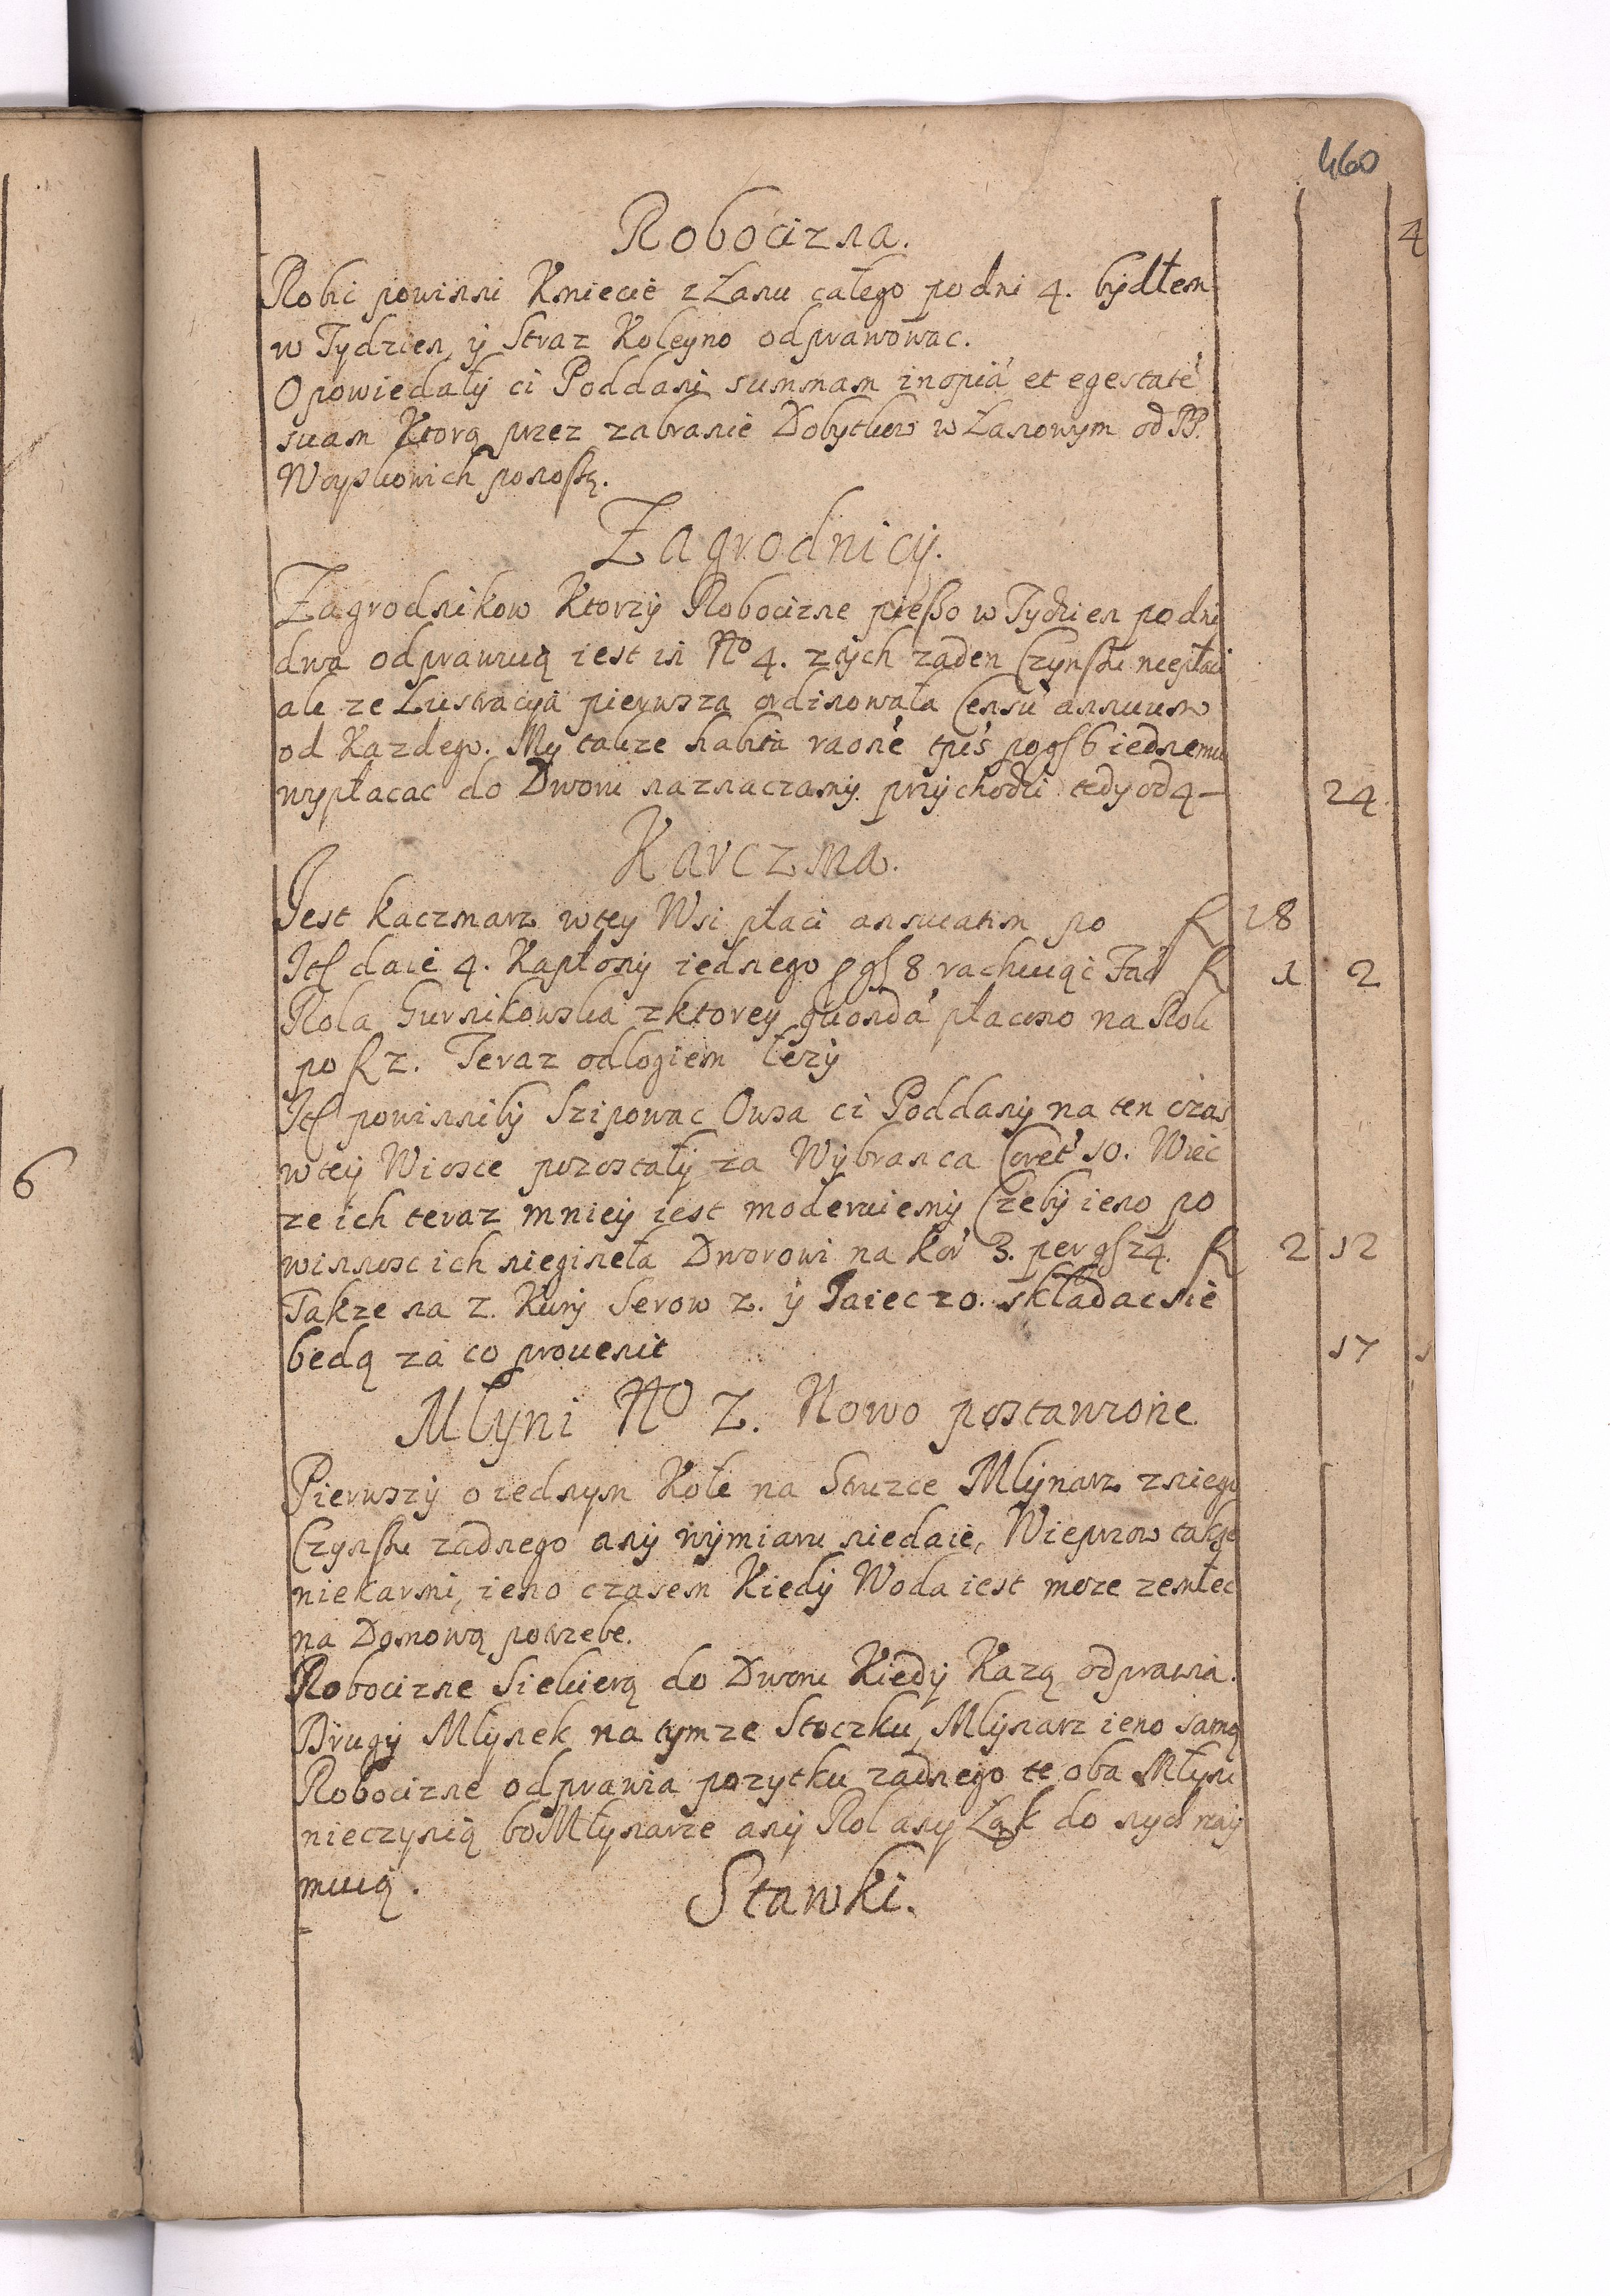 460
4
Robocizna.
Robic powinni Kmiecie z Łanu całego po dni 4. bydłem
w Tydzien, ÿ Straz Koleyno odprawowac.
Opowiedały ci Poddani summam inopiá et egestaté
suam Ktorą przez zabranie Dobytkow w Łanowym od PP.
Woyskowich ponoszę.
Zagrodnicy.
Zagrodnikow Ktorzy Robocizne pieszo w Tydzien po dni
dwa odprawuią iest in No 4. z tych zaden Czynszu niepłaci
ale ze Lustracyia pierwsza ordinowała Censu annuum
od Kazdego. My takze habita raone tpis po gſ 6 iednemu
wypłacac do Dworu naznaczamy przychodzi tedy od 4 — 24
Karczma.
Jest kaczmarz w tey Wsi płaci annuatim po f 28
Itſ daie 4. Kapłony iednego p gſ 8 rachuiąc Fac f 1 2
Rola Gurnikowska z ktorey quondá płacono na Rok
po f 2. Teraz odlogiem lezy
Itſ powinniby Szipowac Owsa ci Poddany na ten czas
w tey Wiosce pozostały za Wybranca Coret 10. Wiec
ze ich teraz mniey iest moderuiemy Czeby ieno po
winnosc ich niegineła Dworowi na kor 3. per gſ 24. f 2 12
Takze na 2. Kury Serow 2. ÿ Jaiec 20. składac sie
bedą za co prouenit 17
Mlyni No 2. Nowo postawione
6
Pierwszy o iednym Kole na Struzce Mlynarz z niego
Czynszu zadnego any wymiaru niedaie, Wieprzow takze
niekarmi, ieno czasem Kiedy Woda iest moze zemlec
na Domową potrzebe.
Robocizne Siekierą do Dworu Kiedy Kazą odprawia.
Drugy Mlynek na tymze Stoczku, Mlynarz ieno samą
Robocizne odprawia pozytku zadnego te oba Młyni
nieczynią bo Młynarze any Rol any Łąk do nych nay
muią.
Stawki.